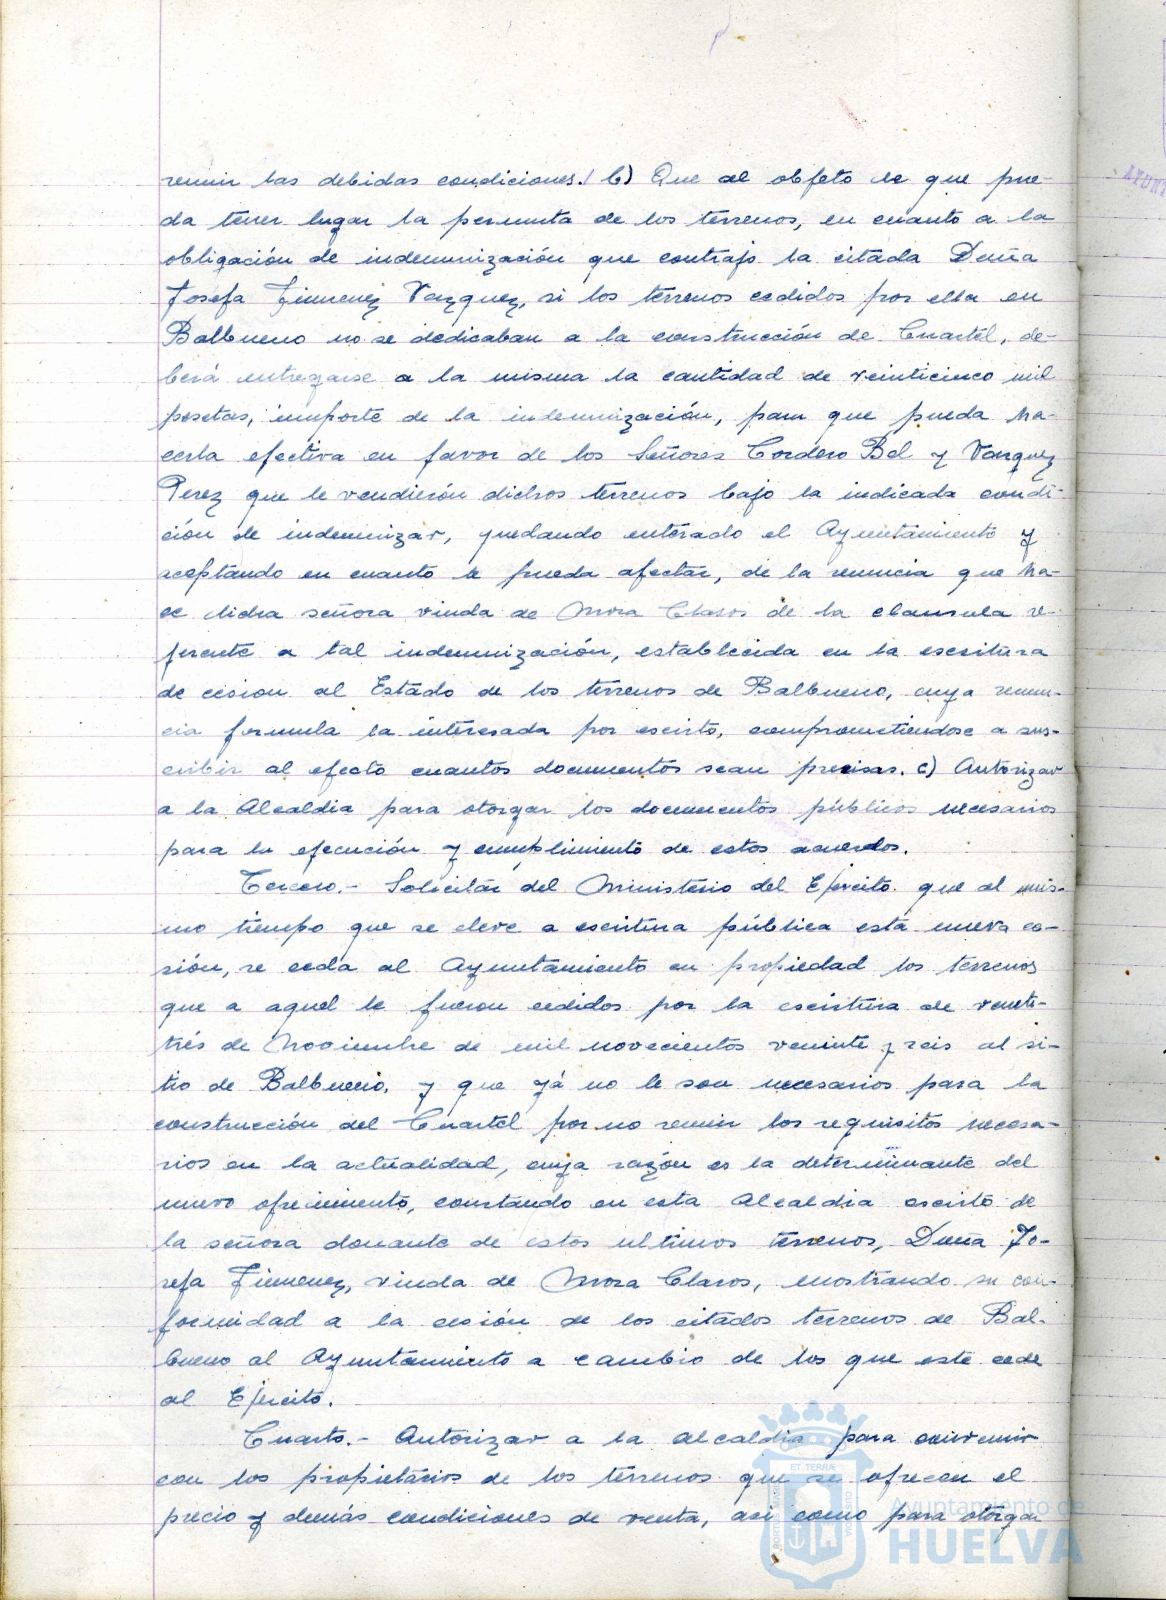 reunir las debidas condiciones. b) Que al objeto de que pue-
da tener lugar la permuta de los terrenos, en cuanto a la
obligación de indemnización que contrajo la citada Doña
Josefa Jimenez Vazquez, si los terrenos cedidos por ella en
Balbueno no se dedicaban a la construcción de Cuartel, de-
berá entregarse a la misma la cantidad de veinticinco mil
pesetas, importe de la indemnización, para que pueda ha-
cerla efectiva en favor de los Señores Cordero Bel y Vazquez
Perez que le vendierón dichos terrenos bajo la indicada condi-
ción de indemnizar, quedando enterado el Ayuntamiento y
aceptando en cuanto le pueda afectar, de la renuncia que ha-
ce dicha señora viuda de Mora Claros de la clausula re-
ferente a tal indemnización, establecida en la escritura
de cesion al Estado de los terrenos de Balbueno, cuya renun-
cia formula la interesada por escrito, comprometiendose a sus-
cribir al efecto cuantos documentos sean precisas. c) Autorizar
a la Alcaldia para otorgar los documentos públicos necesarios
para la ejecución y cumplimiento de estos acuerdos.
Tercero.- Solicitar del Ministerio del Ejercito que al mis-
mo tiempo que se eleve a escritura pública esta nueva ce-
sión, se ceda al Ayuntamiento en propiedad los terrenos
que a aquel le fueron cedidos por la escritura de veinti-
trés de Noviembre de mil novecientos veninte y seis al si-
tio de Balbueno, y que yá no le son necesarios para la
construcción del Cuartel por no reunir los requisitos necesa-
rios en la actualidad, cuya razón es la determinante del
nuevo ofrecimiento, constando en esta Alcaldia escrito de
la señora donante de estos ultimos terrenos, Doña Jo-
sefa Jimenez, viuda de Mora Claros, mostrando su con-
formidad a la cesión de los citados terrenos de Bal-
bueno al Ayuntamiento a cambio de los que este cede
al Ejército.
Cuarto.- Autorizar a la alcaldia para convenir
con los propietarios de los terrenos que se ofrecen el
precio y demás condiciones de venta, asi como para otorgar
Ayuntamiento de
HUELVA
ET TERRÆ